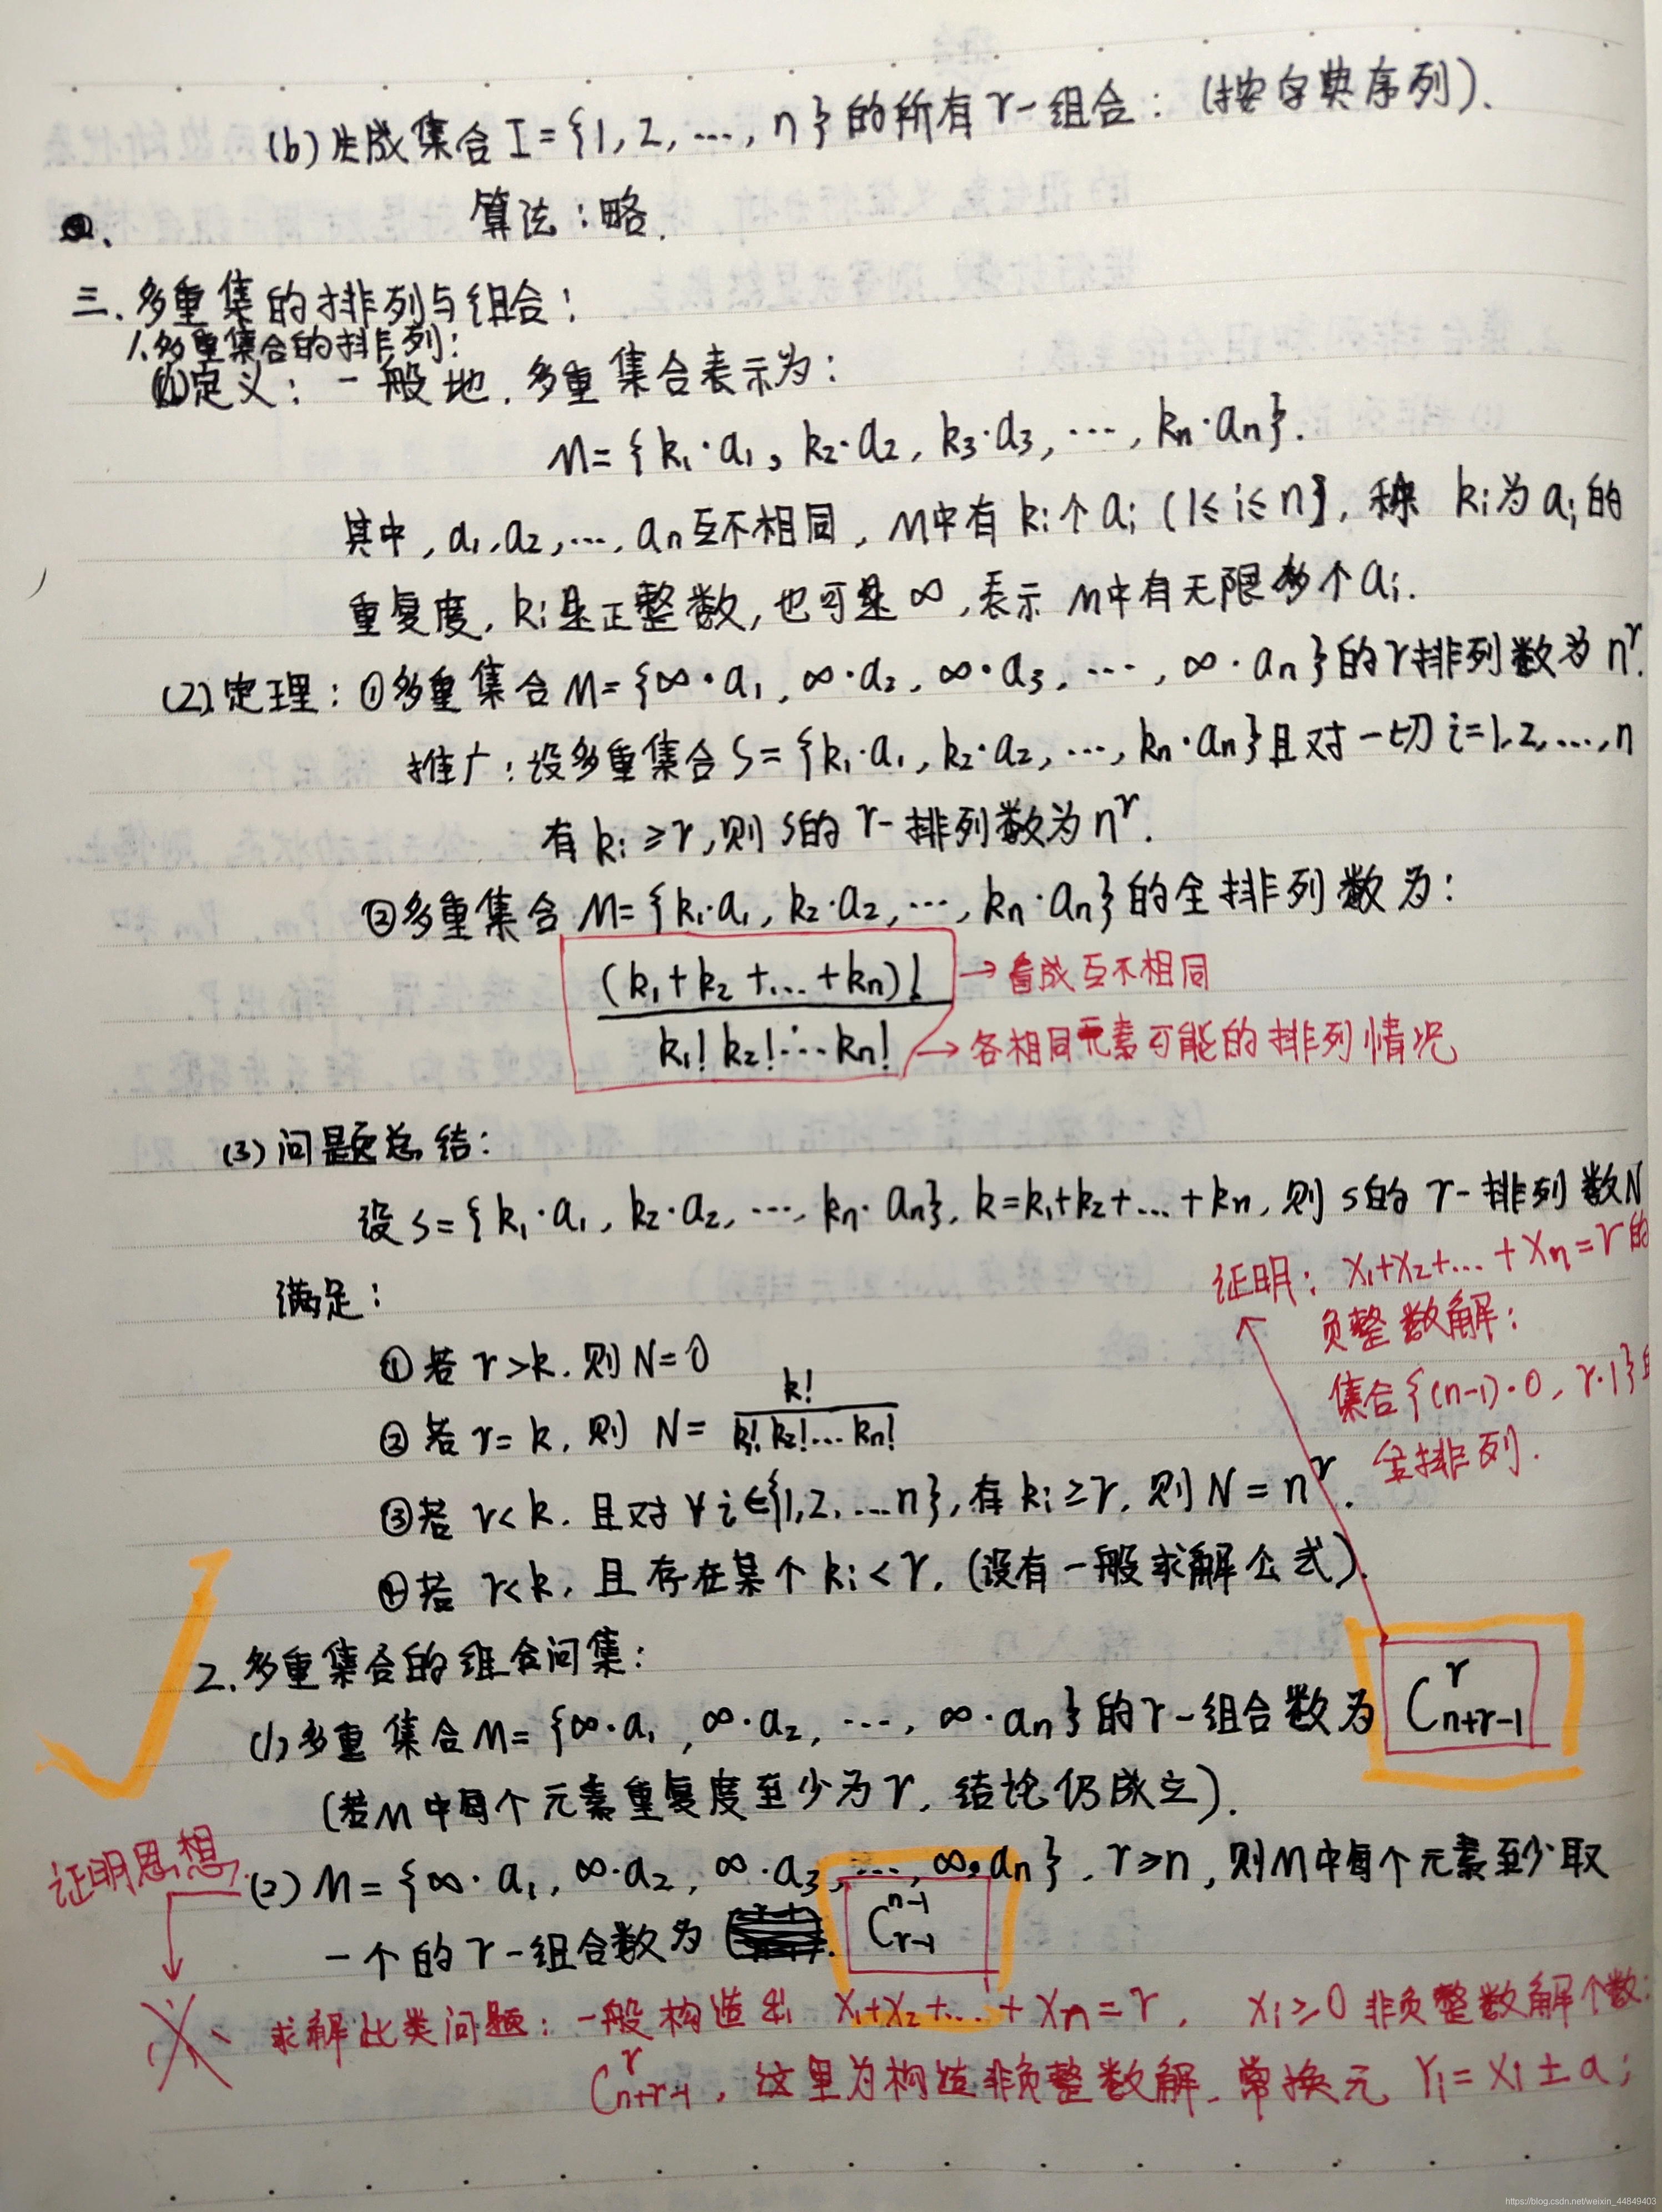 (b) 生成集合 I={1, 2, …, n}的所有 r-组合：(按字典序列).
算法：略.
三. 多重集的排列与组合：
1.多重集合的排列：
(1)定义：一般地. 多重集合表示为：
M={k₁·a₁, k₂·a₂, k₃·a₃, …, kₙ·aₙ}.
其中, a₁,a₂,…, aₙ互不相同, M中有 kᵢ个aᵢ (1≤i≤n), 称 kᵢ为aᵢ的
重复度, kᵢ是正整数, 也可是∞, 表示 M中有无限多个aᵢ.
(2)定理：①多重集合M={∞·a₁, ∞·a₂, ∞·a₃, …, ∞·aₙ}的r排列数为nʳ.
推广：设多重集合S={k₁·a₁, k₂·a₂, …, kₙ·aₙ}且对一切i=1,2,…,n
有kᵢ≥r, 则S的r-排列数为nʳ.
②多重集合M={k₁·a₁, k₂·a₂, …, kₙ·aₙ}的全排列数为：
(k₁+k₂+…+kₙ)! → 看成互不相同
k₁! k₂!…kₙ! → 各相同元素可能的排列情况
(3)问题总结：
设S={k₁·a₁, k₂·a₂, …, kₙ·aₙ}, k=k₁+k₂+…+kₙ, 则S的r-排列数N
满足：
证明：x₁+x₂+…+xₙ=r的
负整数解：
集合{(n-1)·0, r·1}
全排列.
①若r>k. 则N=0
②若r=k, 则 N= k!/k₁! k₂!…kₙ!
③若r<k. 且对∀i∈{1,2,…n}, 有kᵢ≥r, 则N=nʳ.
④若 r<k, 且存在某个kᵢ<r. (没有一般求解公式).
2.多重集合的组合问集：
(1)多重集合M={∞·a₁, ∞·a₂, …, ∞·aₙ}的r-组合数为 Cʳₙ₊ᵣ₋₁
(若M中每个元素重复度至少为r, 结论仍成立).
证明思想
(2) M={∞·a₁, ∞·a₂, ∞·a₃, …, ∞·aₙ}, r≥n, 则M中每个元素至少取
一个的r-组合数为 Cⁿ⁻¹ᵣ₋₁
求解此类问题：一般构造出 x₁+x₂+…+xₙ=r, xᵢ≥0非负整数解个数:
Cʳₙ₊ᵣ₋₁, 这里为构造非负整数解. 常换元 Yᵢ=xᵢ±a;
https://blog.csdn.net/weixin_44849403